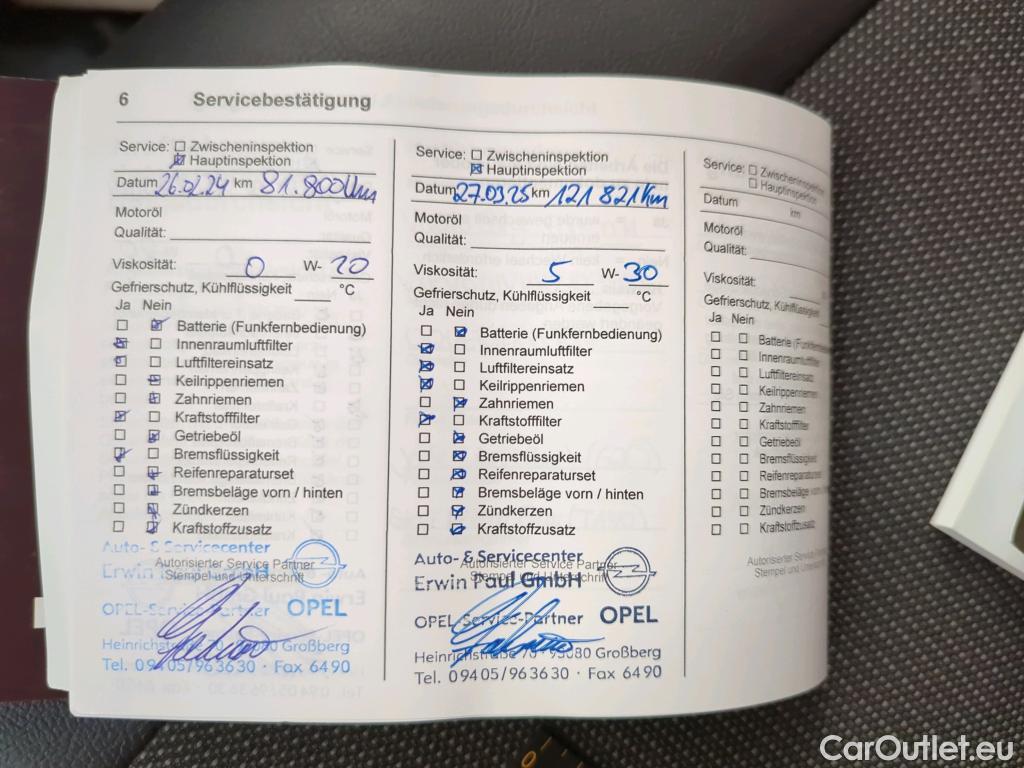 6 Servicebestätigung
Service: Zwischeninspektion
Hauptinspektion
Datum 26.02.24 km 81.800 km
Motoröl
Qualität:
Viskosität: 0 W- 20
Gefrierschutz, Kühlflüssigkeit °C
Ja Nein
Batterie (Funkfernbedienung)
Innenraumluftfilter
Luftfiltereinsatz
Keilrippenriemen
Zahnriemen
Kraftstofffilter
Getriebeöl
Bremsflüssigkeit
Reifenreparaturset
Bremsbeläge vorn / hinten
Zündkerzen
Kraftstoffzusatz
Auto- & Servicecenter
Autorisierter Service Partner
Stempel und Unterschrift
Erwin
OPEL-Service-Partner OPEL
Heinrichstraße 70 Großberg
Tel. 09405/963630 · Fax 6490
Service: Zwischeninspektion
Hauptinspektion
Datum 27.03.25 km 121 821 Km
Motoröl
Qualität:
Viskosität: 5 W- 30
Gefrierschutz, Kühlflüssigkeit °C
Ja Nein
Batterie (Funkfernbedienung)
Innenraumluftfilter
Luftfiltereinsatz
Keilrippenriemen
Zahnriemen
Kraftstofffilter
Getriebeöl
Bremsflüssigkeit
Reifenreparaturset
Bremsbeläge vorn / hinten
Zündkerzen
Kraftstoffzusatz
Auto- & Servicecenter
Autorisierter Service Partner
Stempel und Unterschrift
Erwin Paul GmbH
OPEL-Service-Partner OPEL
Heinrichstraße 70 · 93080 Großberg
Tel. 09405/963630 · Fax 6490
Service: Zwischeninspektion
Hauptinspektion
Datum km
Motoröl
Qualität:
Viskosität:
Gefrierschutz, Kühlflüssigkeit
Ja Nein
Batterie
Innenraumluftfilter
Luftfiltereinsatz
Keilrippenriemen
Zahnriemen
Kraftstofffilter
Getriebeöl
Bremsflüssigkeit
Reifenreparaturset
Bremsbeläge vorn / hinten
Zündkerzen
Kraftstoffzusatz
Autorisierter Service Partner
Stempel und Unterschrift
CarOutlet.eu